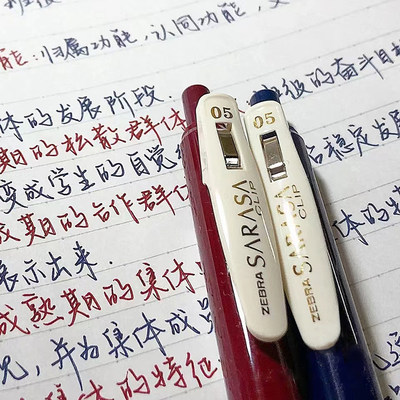 班级
能:归属功能、认同功能、
体的发展阶段.
期的松散群体 级的奋斗目标
变成学生的自觉 稳定发展
成期的合作群体 体的特
表示出来.
成熟期的集体
况,并为集体成员
集体的特征
05
ZEBRA SARASA CLIP
05
ZEBRA SARASA CLIP